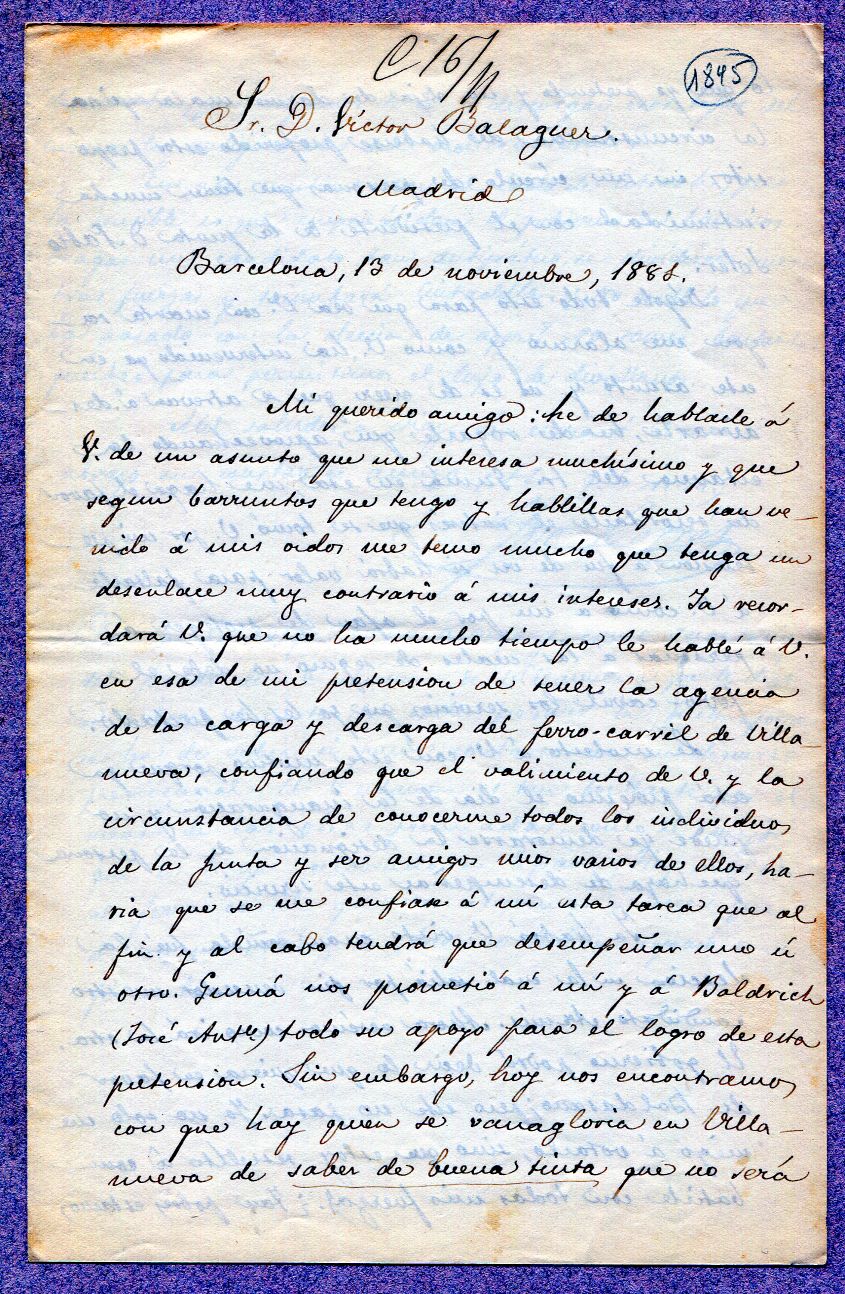 C 16/11
1845
Sr. D. Víctor Balaguer.
Madrid
Barcelona, 13 de noviembre, 1881.
Mi querido amigo: he de hablarle á
V. de un asunto que me interesa muchísimo y que
segun barruntos que tengo y hablillas que han ve-
nido á mis oidos me temo mucho que tenga un
desenlace muy contrario á mis intereses. Ya recor-
dará V. que no ha mucho tiempo le hablé á V.
en esa de mi pretension de tener la agencia
de la carga y descarga del ferro-carril de Villa-
nueva, confiando que el valimiento de V. y la
circunstancia de conocerme todos los individuos
de la Junta y ser amigos unos varios de ellos, ha-
ria que se me confiase á mí esta tarea que al
fin y al cabo tendrá que desempeñar uno ú
otro. Gumá nos prometió á mí y á Baldrich
(José Antº) todo su apoyo para el logro de esta
pretension. Sin embargo, hoy nos encontramos
con que hay quien se vanagloria en Villa-
nueva de saber de buena tinta que no será